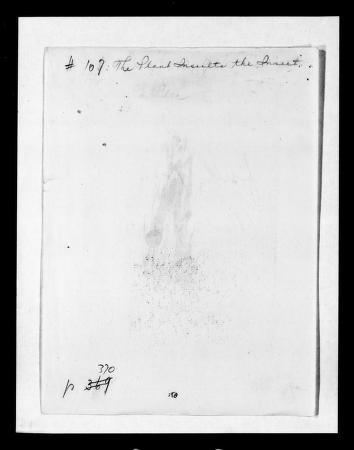 # 107: The Plant Insults the Insect.
370
p 369